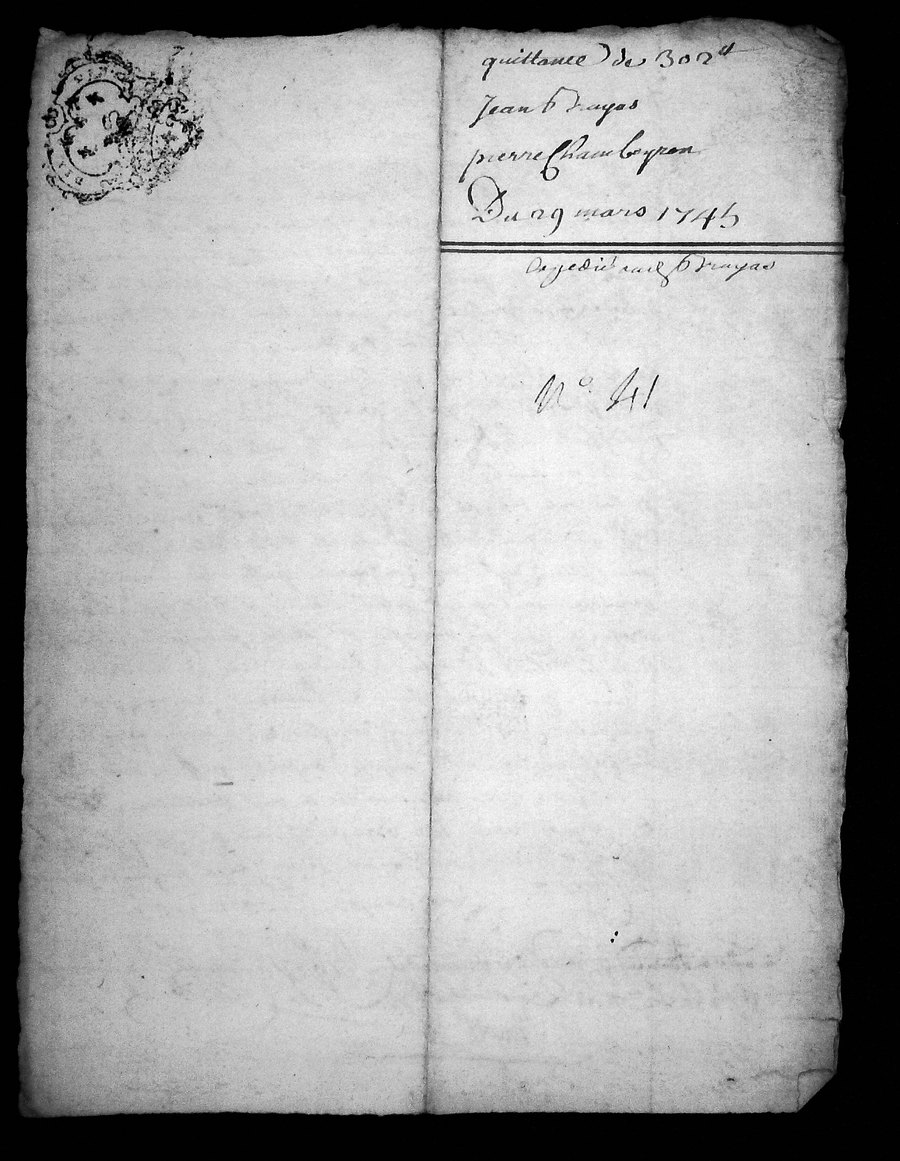 quittance de 302ᵗᵗ
Jean Brayas
pierre Chambeyron
Du 29 mars 1745
Brayas
Nº 41